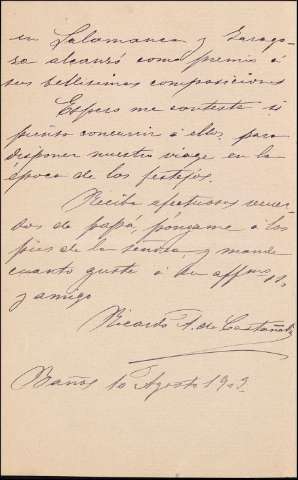 en Salamanca y Zarago-
za alcanzó como premio á
sus bellísimas composiciones
Espero me conteste si
piensa concurrir á ellos para
disponer nuestro viage en la
época de los festejos.
Reciba afectuosos recuer-
dos de papá, póngame á los
pies de la señora, y mande
cuanto guste á su affmo. s.s.
y amigo
Ricardo A. de Castañeda
Baños 10 Agosto 1902